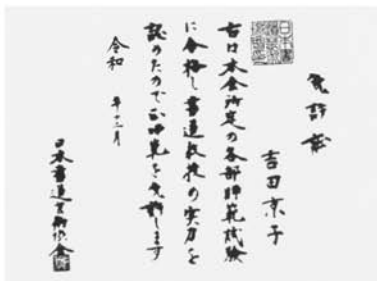 免許状
吉田京子
右は本会所定の各部師範試験
に合格し書道教授の実力を
認めたので正師範を免許します
令和 年十二月
日本書道芸術協会